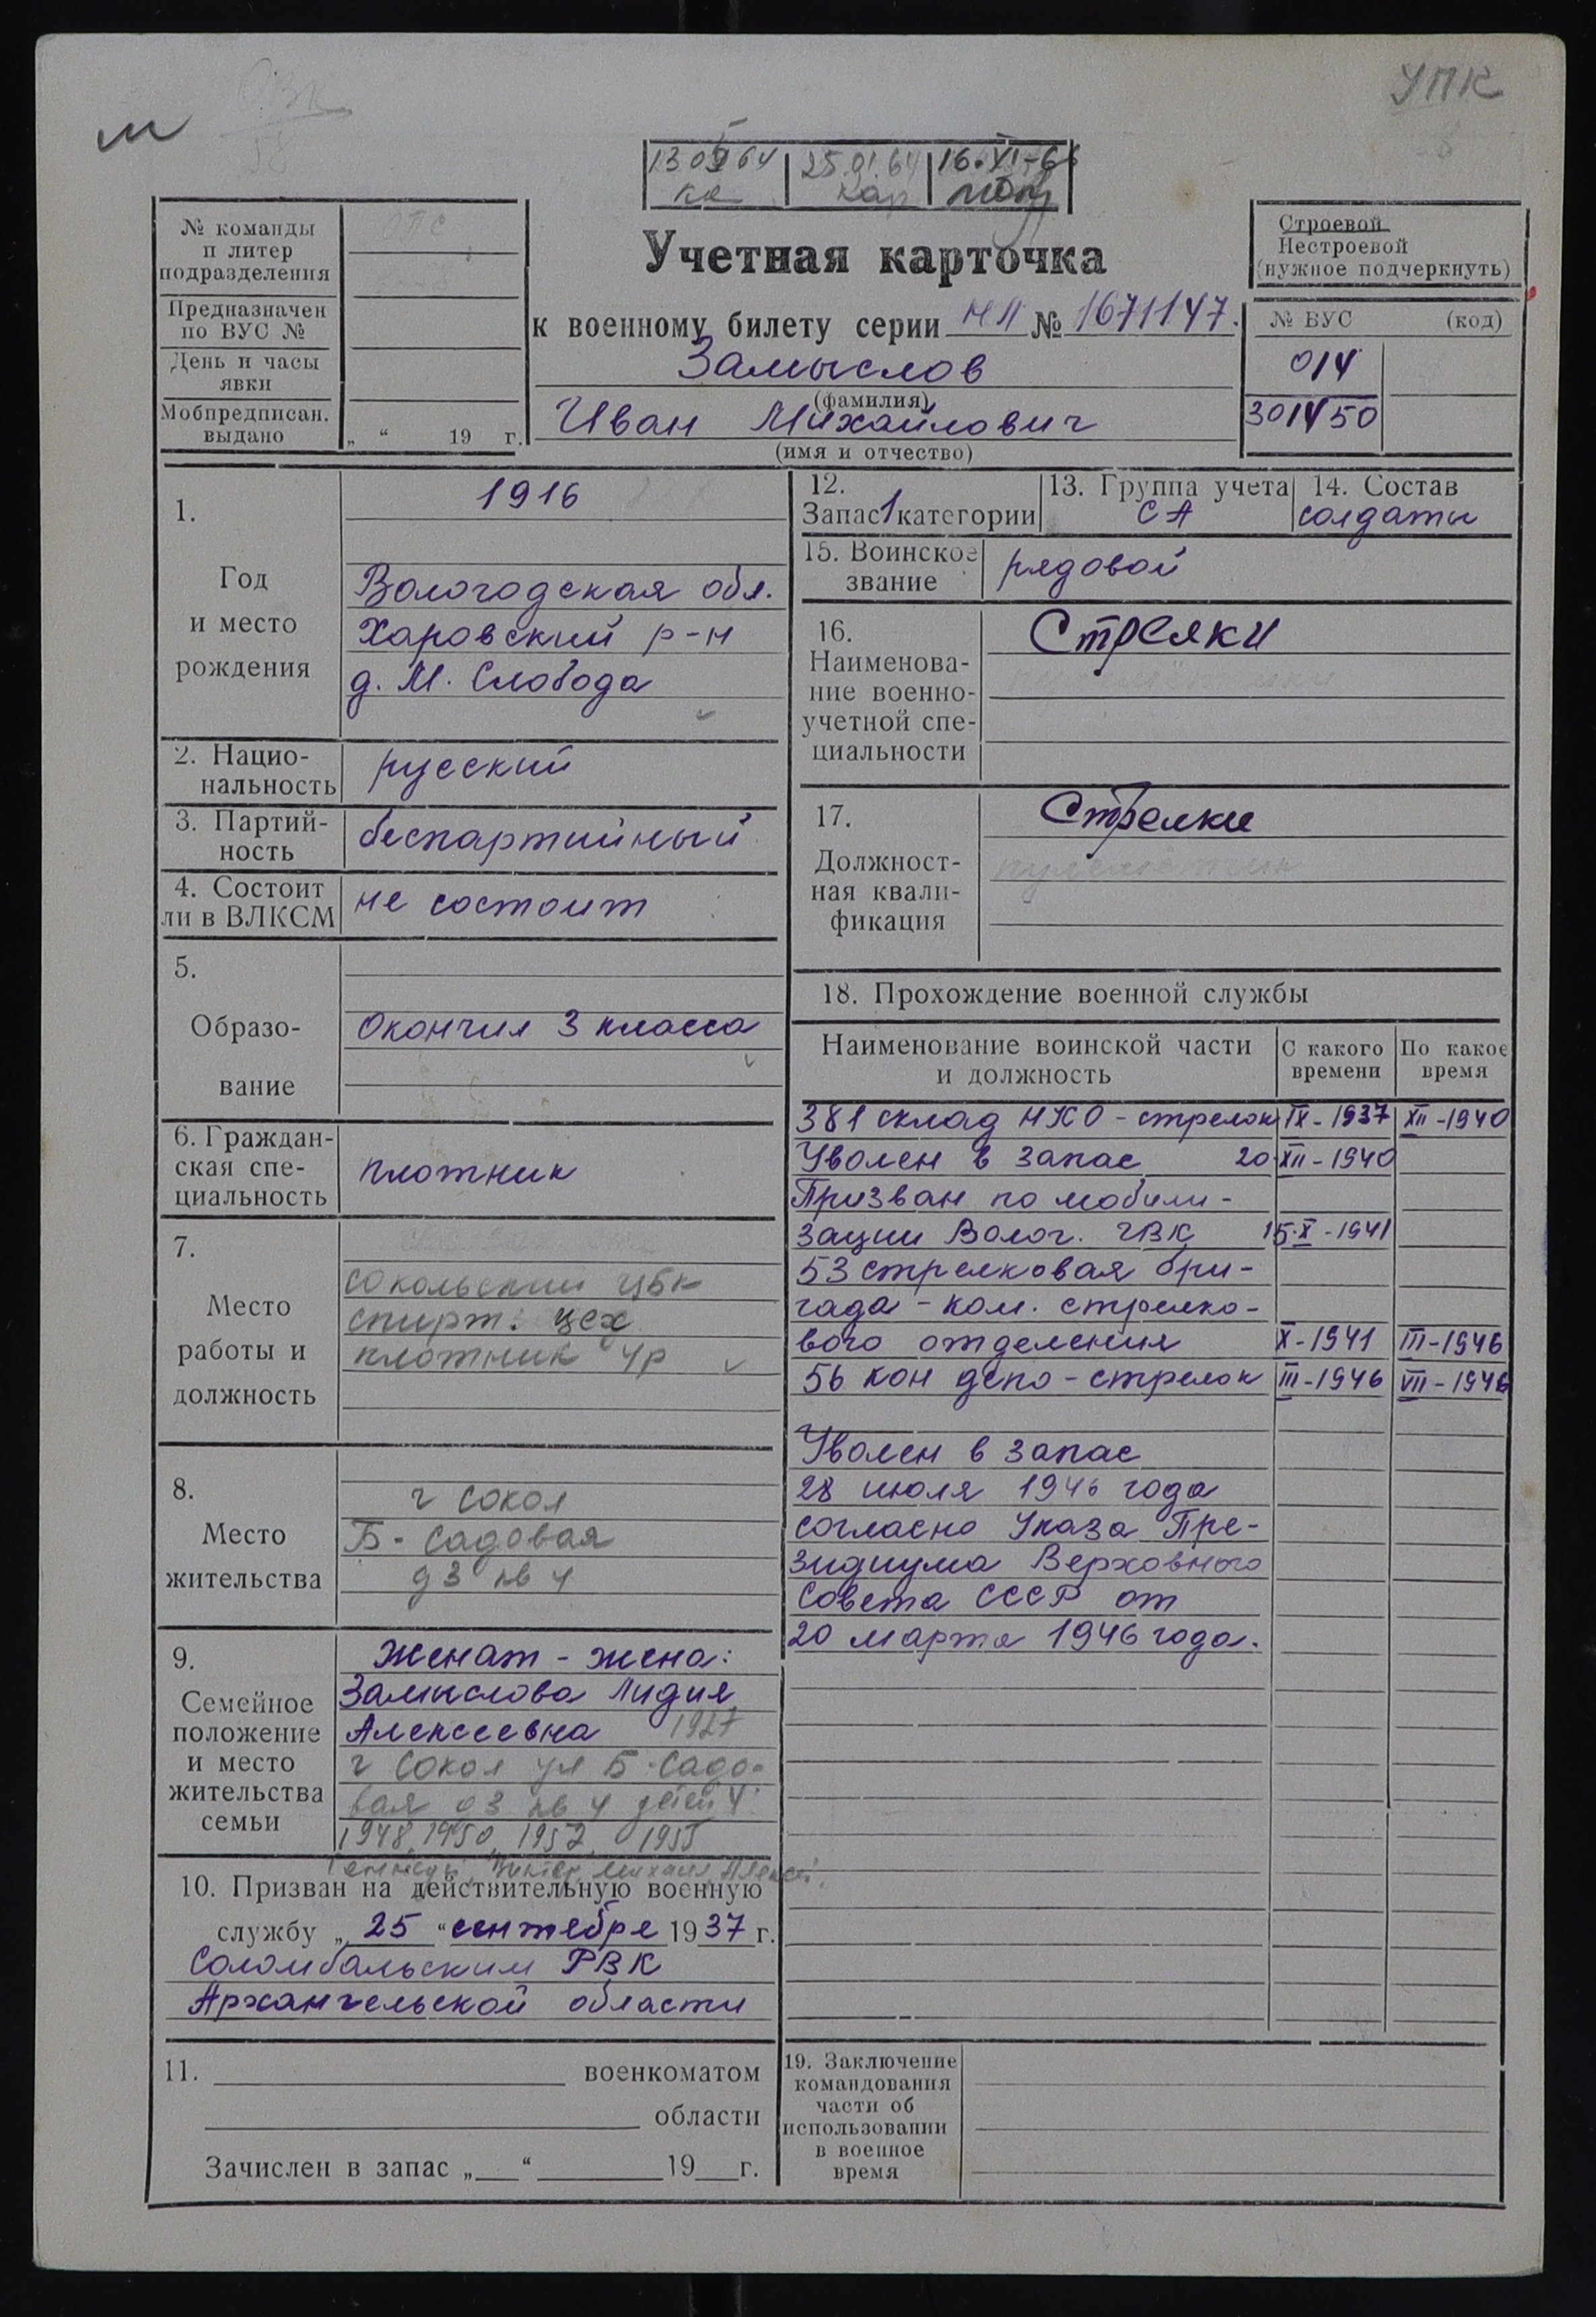 УПК
м
13 05 64
25.01.64
16.XI-66
№ команды
и литер
подразделения
Предназначен
по ВУС №
День и часы
явки
Мобпредписан.
выдано
„ “ 19 г.
Учетная карточка
к военному билету серии НЛ № 1671147.
Замыслов
(фамилия)
Иван Михайлович
(имя и отчество)
Строевой
Нестроевой
(нужное подчеркнуть)
№ ВУС (код)
014
301450
1.
Год
и место
рождения
1916
Вологодская обл.
Харовский р-н
д. М. Слобода
2. Нацио-
нальность
русский
3. Партий-
ность
беспартийный
4. Состоит
ли в ВЛКСМ
не состоит
5.
Образо-
вание
Окончил 3 класса
6. Граждан-
ская спе-
циальность
плотник
7.
Место
работы и
должность
Сокольский ЦБК
спирт. цех
плотник 4р
8.
Место
жительства
г Сокол
Б-Садовая
д 3 кв 4
9.
Семейное
положение
и место
жительства
семьи
Женат - жена:
Замыслова Лидия
Алексеевна 1927
г Сокол ул Б-Садо-
вая д 3 кв 4 детей 4:
1948, 1950, 1952, 1955
Геннадий, Виктор, Михаил, Алексей.
10. Призван на действительную военную
службу „25“ сентября 1937 г.
Соломбальским РВК
Архангельской области
11. военкоматом
области
Зачислен в запас „ “ 19 г.
12.
Запас 1 категории
13. Группа учета
СА
14. Состав
солдаты
15. Воинское
звание
рядовой
16.
Наименова-
ние военно-
учетной спе-
циальности
Стрелки
17.
Должност-
ная квали-
фикация
Стрелки
18. Прохождение военной службы
Наименование воинской части
и должность
С какого
времени
По какое
время
381 склад НКО - стрелок IX-1937 XII-1940
Уволен в запас 20 XII-1940
Призван по мобили-
зации Волог. ГВК 15.X-1941
53 стрелковая бри-
гада - ком. стрелко-
вого отделения X-1941 III-1946
56 кон депо - стрелок III-1946 VII-1946
Уволен в запас
28 июля 1946 года
согласно Указа Пре-
зидиума Верховного
Совета СССР от
20 марта 1946 года.
19. Заключение
командования
части об
использовании
в военное
время